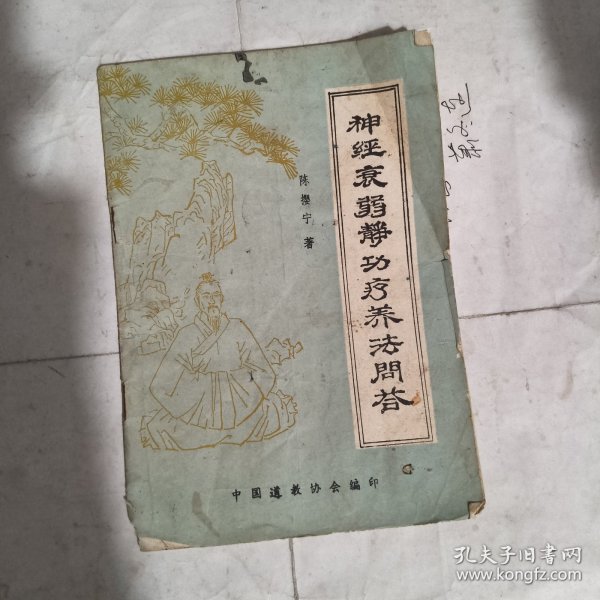 神經衰弱靜功疗养法問答
陈撄宁 著
中国道教协会编印
孔夫子旧书网
www.kongfz.com